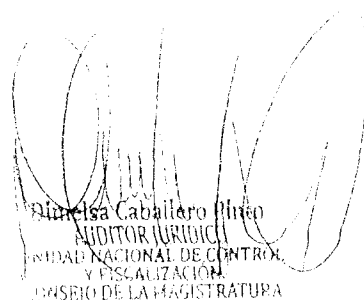 Dimelsa Caballero Pinto
AUDITOR JURIDICO
UNIDAD NACIONAL DE CONTROL
Y FISCALIZACIÓN
CONSEJO DE LA MAGISTRATURA